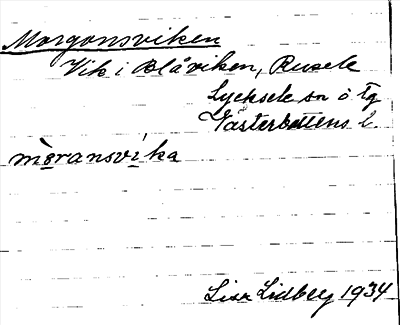 Morgonsviken
Vik i Blåviken, Rusele
Lycksele sn o tg
Västerbottens l.
mòransvika
Lisa Lidberg 1934